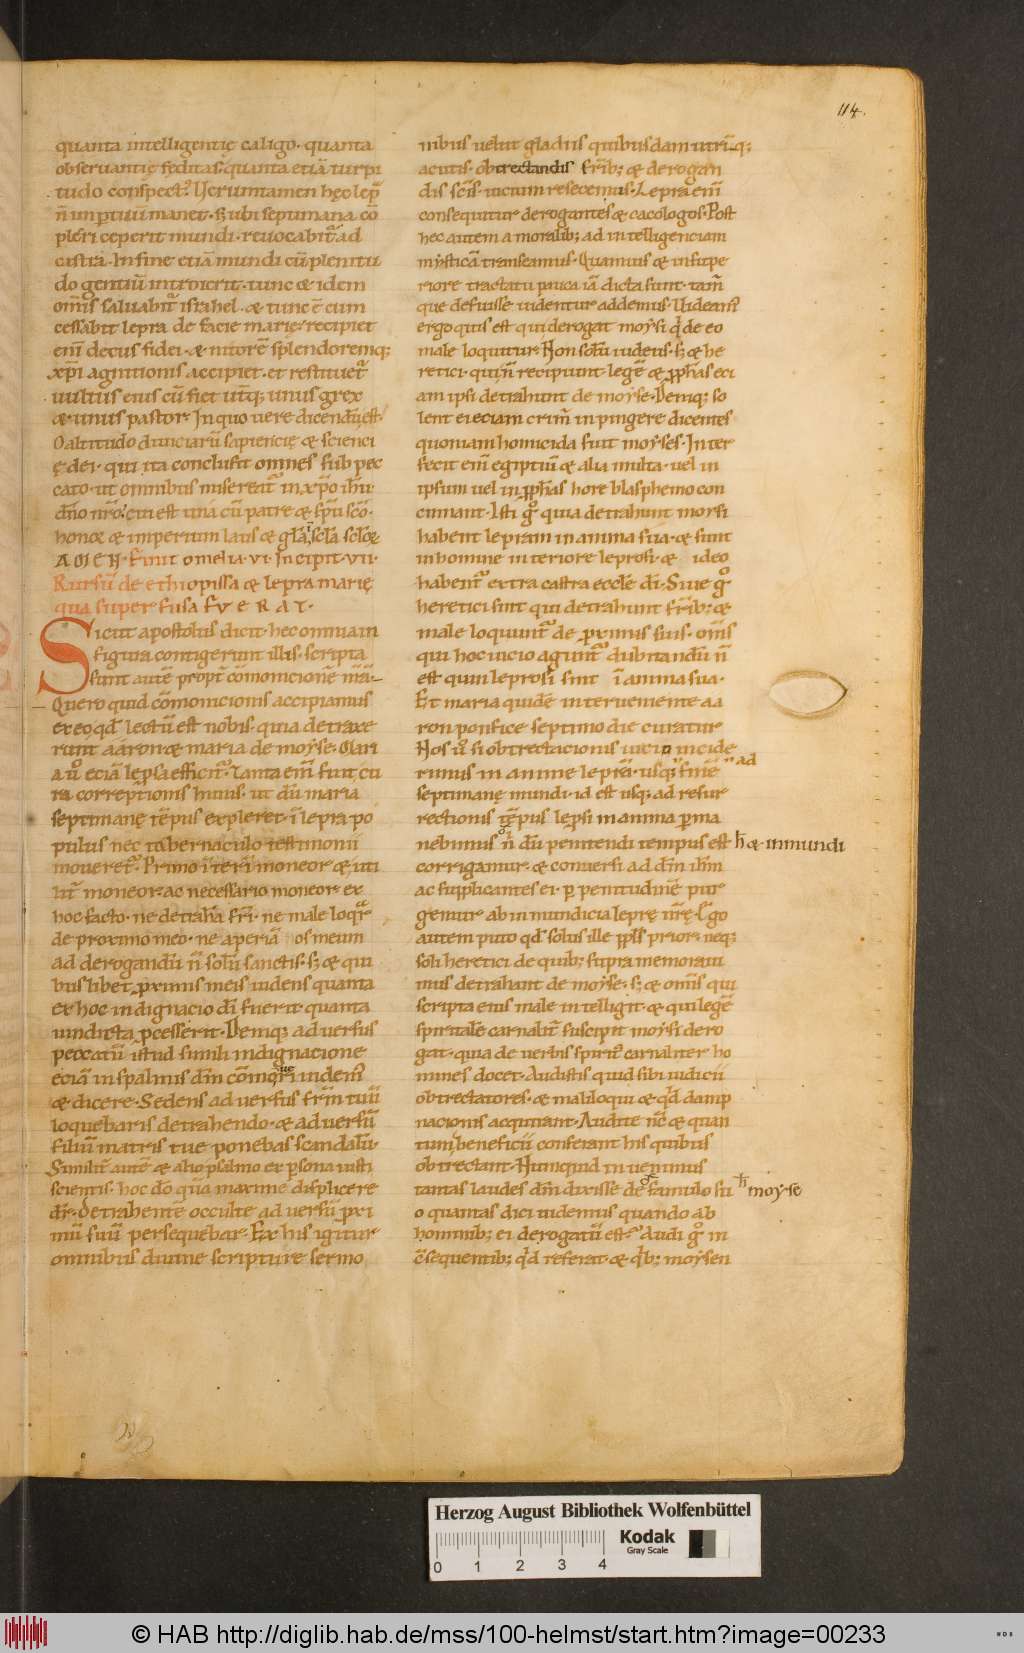 114.
quanta intelligentię caligo· quanta
obseruantię fęditas· quanta etiā turpi
tudo conspectꝰ. Verumtamen hęc lepra
ubi septimana cō
pleri ceperit mundi· reuocabitᷣ ad
castra· In fine etiā mundi cū plenitu
do gentiū introierit· tunc & idem
omīs saluabitᷣ israhel· & tunc ē cum
cessabit lepra de facie marię· recipiet
enī decus fidei· & nitorē splendoremq;
xp̄i agnitionis accipiet· et restituetᷣ
uultus eius cū fiet utq; unus grex
& unus pastor· In quo uere dicendū est·
O altitudo diuiciarū sapiencię & scienci
ę dei· qui ita conclusit omnes sub pec
cato· ut omnibus misereatᷣ in xp̄o ih̄u
dn̄o nr̄o· cui est una cū patre & sp̄u sc̄o·
honor & imperium laus & gl̄a in scl̄a scl̄oꝝ
AMEN· Finit omelia·vi· Incipit·vii·
Rursū de ethiopissa & lepra marię
qua superfusa FVERAT·
Sicut apostolus dicit· hec omnia in
figura contigerunt illis· scripta
sunt autē propt̄ cōmonicionē
Quero quid cōmonicionis accipiamus
ex eo qd̄ lectū est nobis· quia detraxe
runt aaron & maria de moyse· Mari
a ū eciā lepsa efficitᷣ· Tanta enī fuit cu
ra correptionis huius· ut dū maria
septimanę tēpus expleret· ī lepra po
pulus nec tabernaculo testimonii
moueretᷣ· Primo
moneor ac necessario moneor· ex
hoc facto· ne detrahā fr̄i· ne male loqr̄
de proximo meo· ne aperiā os meum
ad derogandū n̄ solū sanctis· s; & qui
buslibet proximis meis uidens quanta
ex hoc indignacio dī fuerit quanta
uindicta ꝓcesserit· Deniq; aduersus
peccatū istud simili indignacione
eciā in psalmis dn̄m cōmoueri uidem̄
& dicere· Sedens aduersus fr̄m tuū
loquebaris detrahendo· & aduersū
filiū matris tue ponebas scandalū·
Similit̄ autē & alio psalmo ex ꝑsona iusti
scientis· hoc dō maxime displicere
Detrahente occulte aduersū ꝓxi
mū suū persequebar· Ex his igitur
omnibus diuine scripture sermo
nibus uelut gladiis quibusdam utrīq;
acutis· obtrectandis fr̄ib; & derogan
dis sc̄is· uicium resecemus· Lepra enī
consequitur derogantes & cacologos· Post
hec autem a moralib; ad intelligenciam
mysticā transeamus· Quamuis & in supe
riore tractatu pauca iā dicta sunt· tam̄
que defuisse uidentur addemus· Uideam̄
ergo quis est qui derogat moysi qd̄ de eo
male loquitur· Non solū iudeus· s; & he
retici· qui n̄ recipiunt legē & ꝓph̄as eci
am ipsi detrahunt de moyse· Deniq; so
lent ei eciam crim̄ inpingere dicentes
quoniam homicida fuit moyses· Inter
fecit enī egiptiū & alia multa· uel in
ipsum uel in ꝓph̄as hore blasphemo con
cinnant· Isti gͦ quia detrahunt moysi
habent lepram in anima sua· & sunt
in homine interiore leprosi· & ideo
habentᷣ extra castra ecclē dī· Siue gͦ
heretici sint qui detrahunt fr̄ib; &
male loquuntᷣ de proximis suis· omīs
qui hoc uicio aguntᷣ dubitandū n̄
est quin leprosi sint ī anima sua·
Et maria quidē interueniente aa
ron pontifice septimo die curatur
Nos ū si obtrectacionis uicio incide
rimus in anime leprā· usq; ad finē
septimanę mundi· id est usq; ad resur
rectionis tēpus lepsi in anima ꝑma
nebimus n̄ dū penitendi tempus est h̄ & inmundi
corrigamur· & conuersi ad dn̄m ih̄m
ac supplicantes ei· ꝑ penitudinē pur
gemur ab inmundicia leprę nr̄ę· Ego
autem puto qd̄ solus ille ppl̄s prior neq;
soli heretici de quib; supra memoraui
mus detrahant de moyse· s; & omīs qui
scripta eius male intelligit· & qui legē
spiritalē carnalit̄ suscipit moysi dero
gat· quia de uerbis spiritꝰ carnaliter ho
mines docet· Audistis quid sibi iudicii
obtrectatores· & maliloqui & qd̄ damp
nacionis acquirant· Audite nc̄ & quan
tum beneficii conferant his quibus
obtrectant· Numquid inuenimus
tantas laudes dn̄m dixisse de famulo su h̄ moyse
o quantas dici uidemus quando ab
hominib; ei derogatū est· Audi gͦ in
cōsequentib; qd̄ referat· & qb; moysen
Herzog August Bibliothek Wolfenbüttel
Kodak
Gray Scale
0 1 2 3 4
© HAB http://diglib.hab.de/mss/100-helmst/start.htm?image=00233